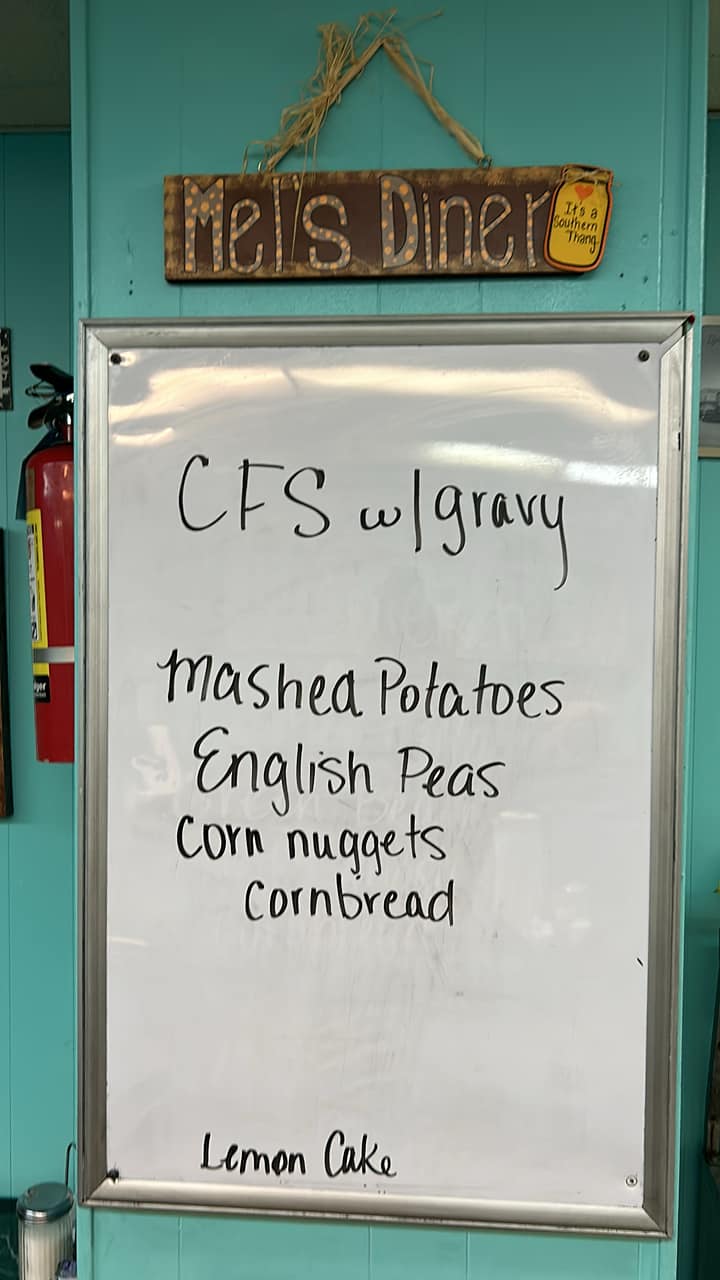 Mel's Diner
It's a
Southern
Thang
CFS w/gravy
Mashed Potatoes
English Peas
Corn nuggets
Cornbread
Lemon Cake